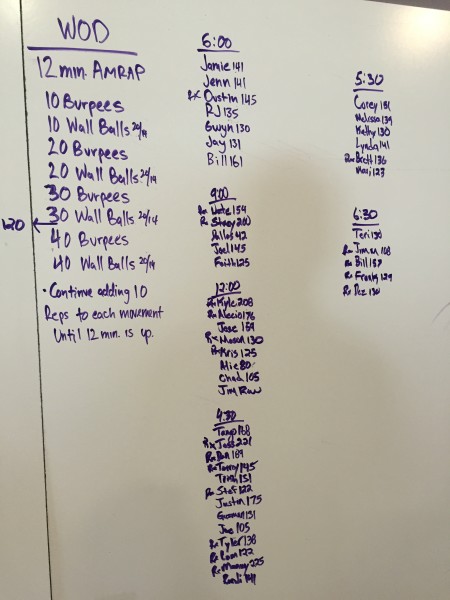 WOD
12 min. AMRAP
10 Burpees
10 Wall Balls 20/14
20 Burpees
20 Wall Balls 20/14
30 Burpees
120 ← 30 Wall Balls 20/14
40 Burpees
40 Wall Balls 20/14
• Continue adding 10
Reps to each movement
Until 12 min. is up.
6:00
Jamie 141
Jenn 141
Rx Dustin 145
RJ 135
Gwyn 130
Jay 131
Bill 161
9:00
Rx 154
Rx Stacy 200
Dallas 42
Joel 145
Faith 125
12:00
Rx Kyle 208
Rx 176
Jose 159
Rx 130
Rx Kris 125
Alie 80
Chad 105
Jim Row
4:30
168
Rx 221
Rx 189
Rx 145
Trish 151
Rx 122
Justin 175
131
Joe 105
Rx Tyler 138
Rx 122
Rx Manny 225
5:30
Corey 151
Melissa 139
Kathy 130
Lynda 141
Rx Brett 136
123
6:30
Teri 130
Rx 108
Rx Bill 157
Rx Frank 129
Rx 130